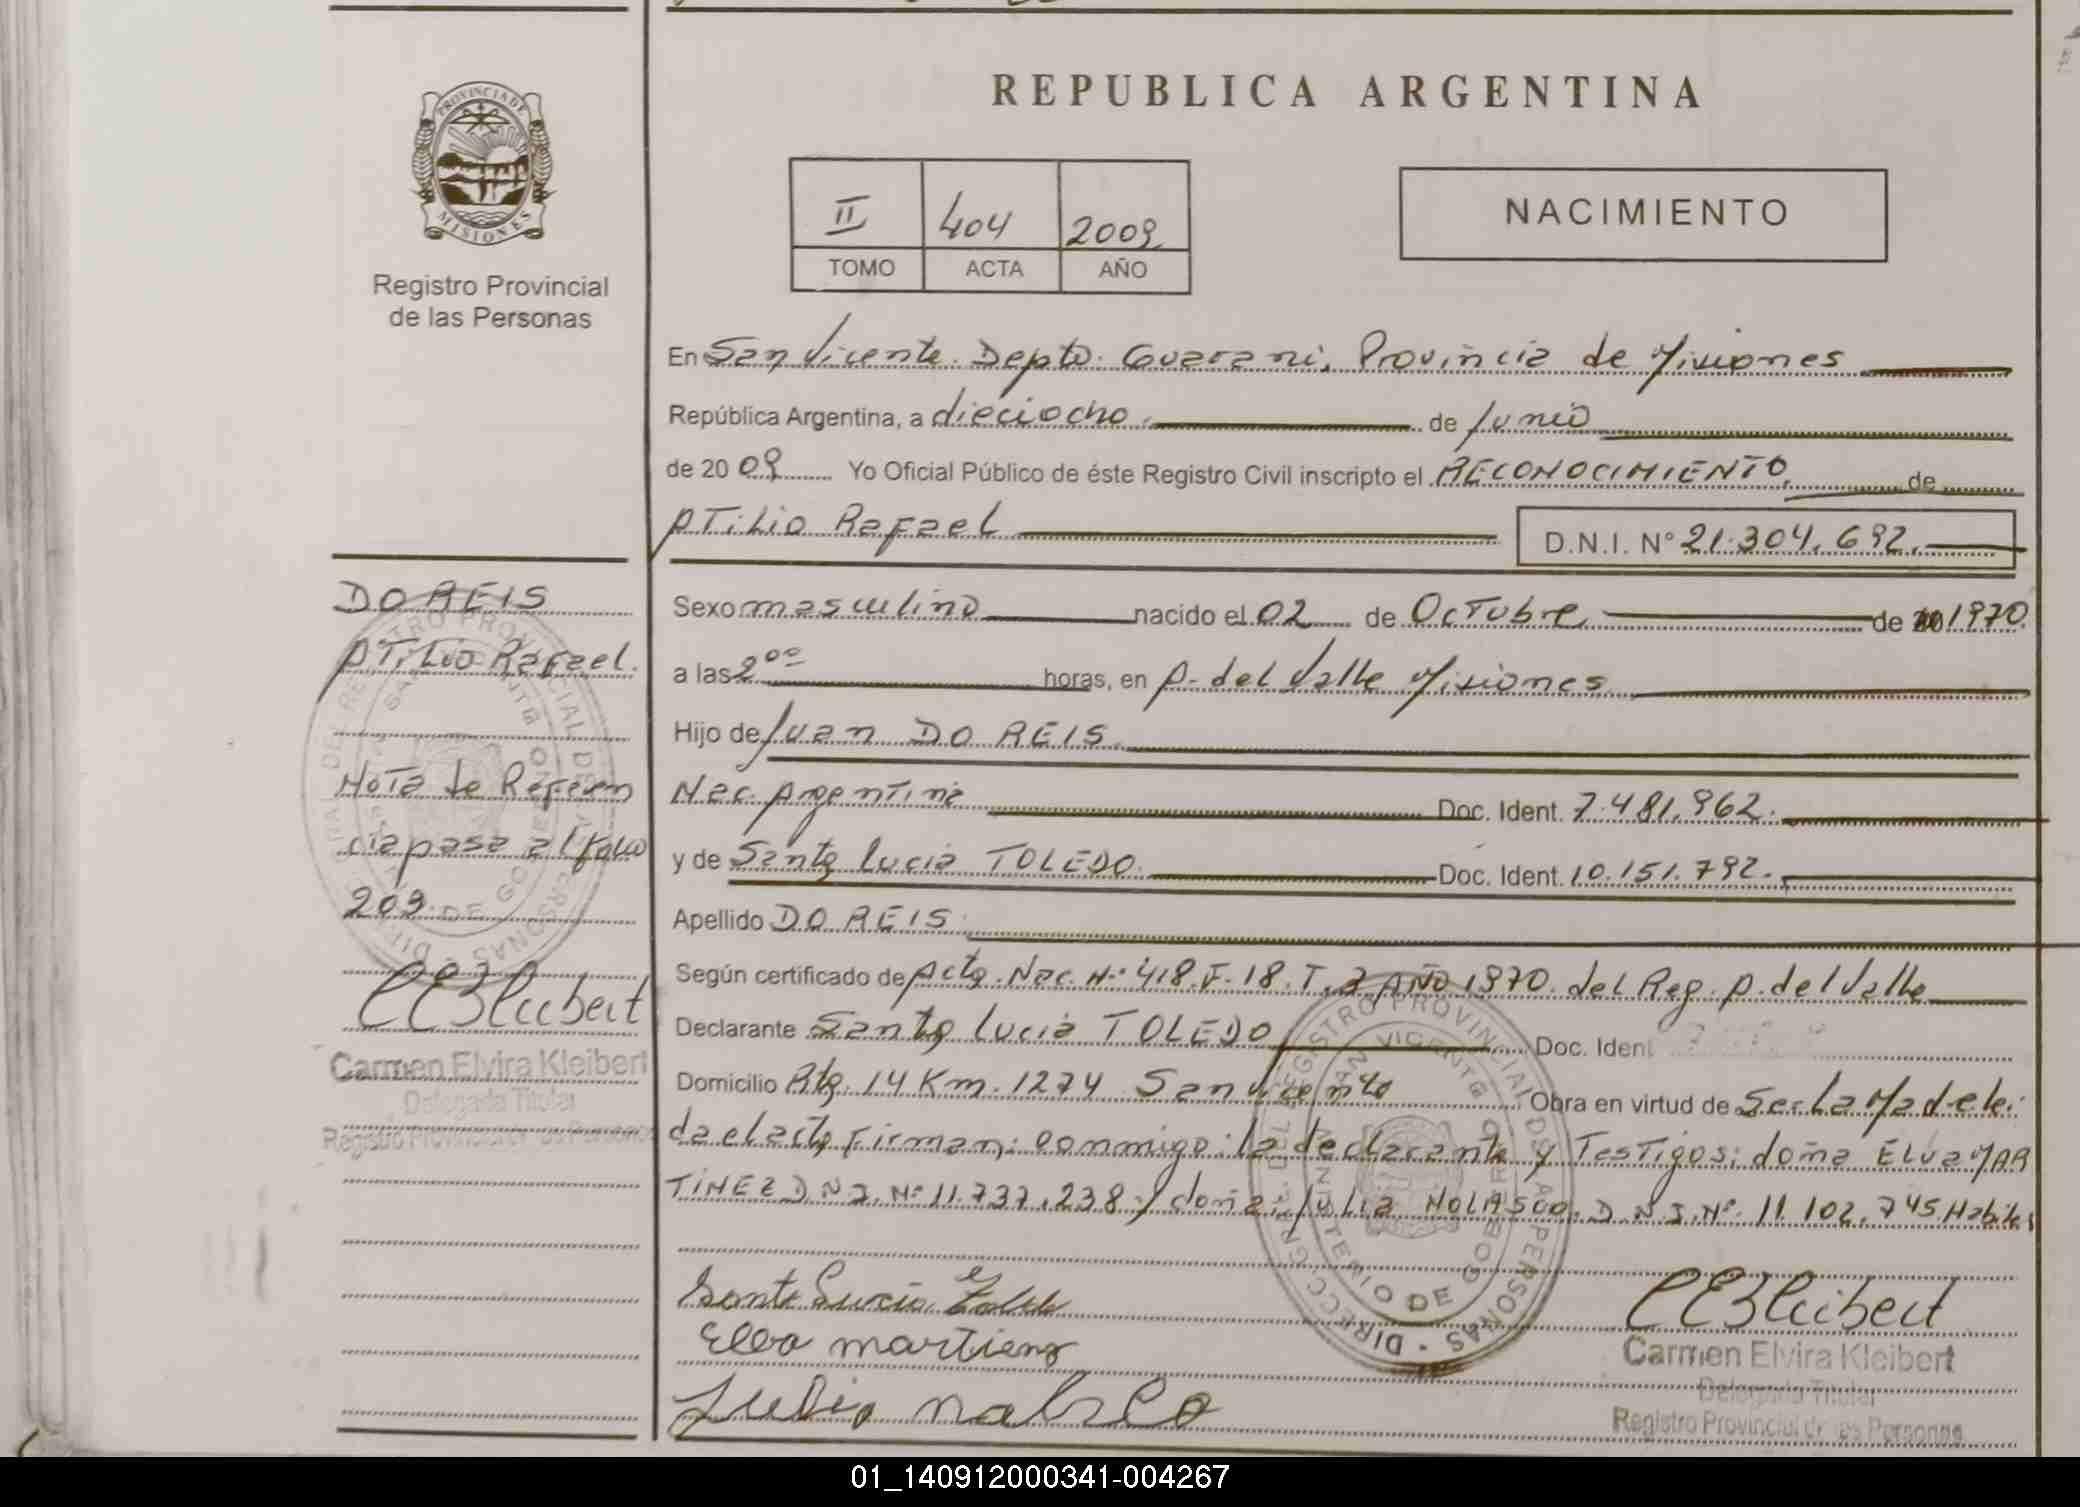 REPUBLICA ARGENTINA
PROVINCIA DE
MISIONES
Registro Provincial
de las Personas
II 404 2009
TOMO ACTA AÑO
NACIMIENTO
En San Vicente. Depto. Guarani, Provincia de Misiones
República Argentina, a dieciocho de Junio
de 2009 Yo Oficial Público de éste Registro Civil inscripto el RECONOCIMIENTO de
ATiLio Rafael D.N.I. N° 21.304.692.
DO REIS
ATiLio Rafael.
Nota de Referen
cia pasa al folio
209.
Carmen Elvira Kleibert
Delegada Titular
Registro Provincial de las Personas
Sexo masculino nacido el 02 de Octubre de 1970
a las 2 00 horas, en A. del Valle Misiones
Hijo de Juan DO REIS
Nac. Argentina Doc. Ident. 7.481.962.
y de Santa Lucia TOLEDO. Doc. Ident. 10.151.792.
Apellido DO REIS
Según certificado de Acta. Nac. N° 418. F. 18. T. 2 AÑO 1970. del Reg. A. del Valle
Declarante Santa Lucia TOLEDO Doc. Ident
Domicilio Rta. 14 Km. 1274 San Vicente Obra en virtud de Ser La Madre lei
da el acta Firman: conmigo: la declarante y Testigos: doña ELva MAR
TINEZ D.N.I. N° 11.737.238 y doña: Julia NOLASCO. D.N.I. N° 11.102.745 Habiles
Santa Lucia Toledo
Elva martienz
Julia nalsco
CEKleibert
Carmen Elvira Kleibert
Delegada Titular
Registro Provincial de las Personas
01_140912000341-004267